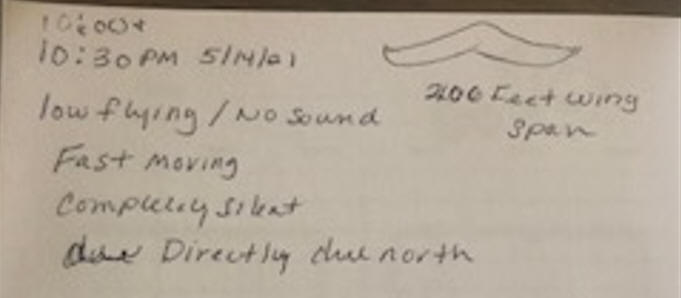 10:00+
10:30 PM 5/14/21
low flying / No sound
200 Feet wing
span
Fast moving
Completely silent
Directly due north